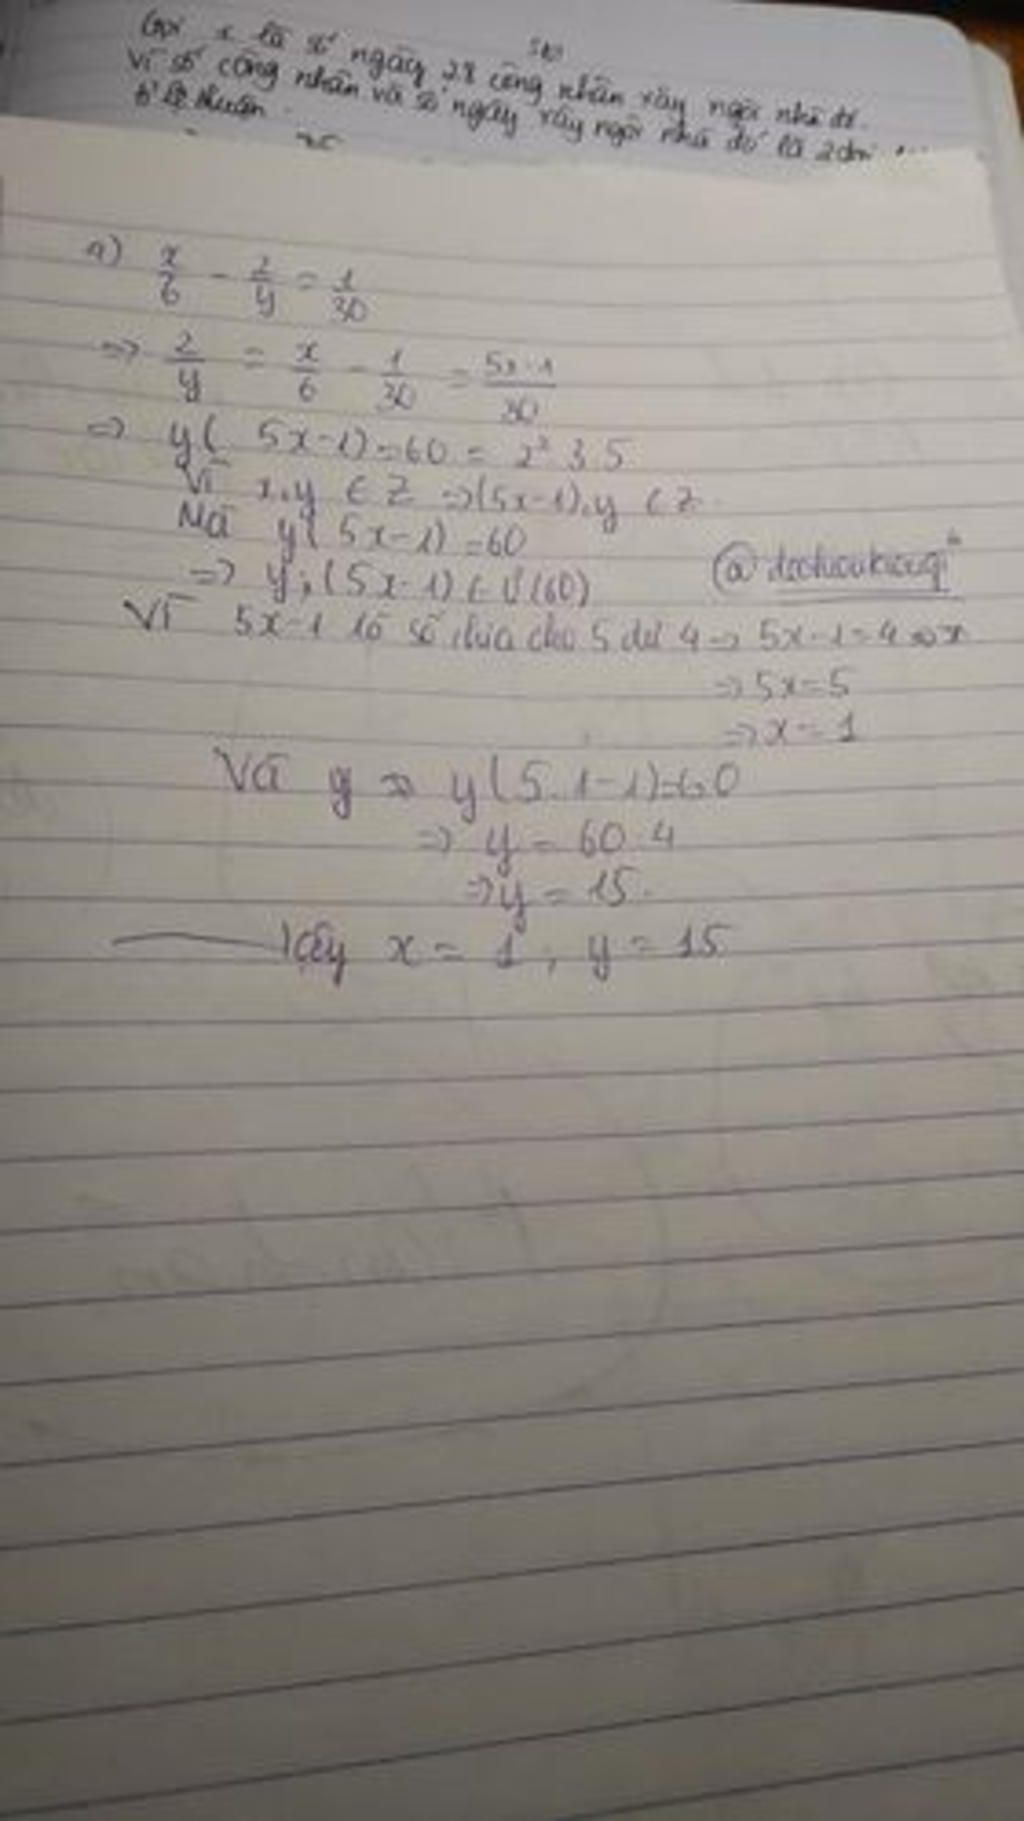 Gọi x là số ngày 28 công nhân xây ngôi nhà đó.
Vì số công nhân và số ngày xây ngôi nhà đó là 2
tỉ lệ thuận.
a) x/6 - 2/y = 1/30
=> 2/y = x/6 - 1/30 = 5x-1/30
=> y( 5x-1)=60 = 2² 3 5
Vì x,y ∈ Z =>(5x-1),y ∈ Z
Mà y( 5x-1) =60
=> y;(5x-1) ∈ Ư(60)
Vì 5x-1 là số chia cho 5 dư 4 => 5x-1=4 => x
=> 5x=5
=> x=1
Và y => y(5.1-1)=60
=> y = 60:4
=> y = 15.
Vậy x = 1 ; y = 15